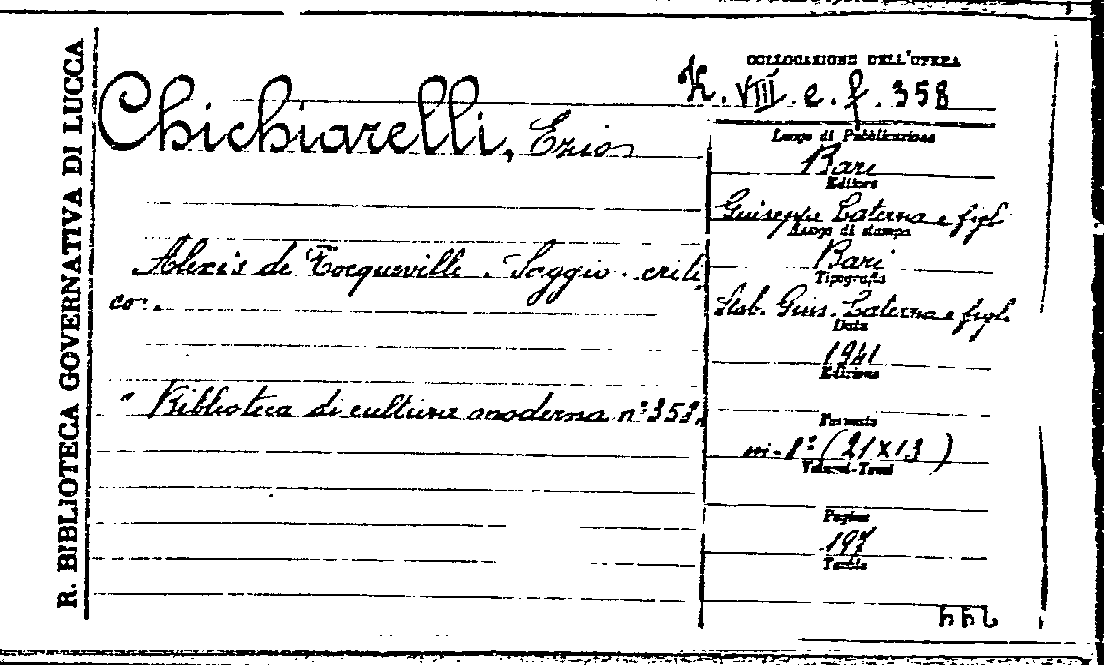 R. BIBLIOTECA GOVERNATIVA DI LUCCA
COLLOCAZIONE DELL'OPERA
K. VIII. e. f. 358
Chichiarelli, Ezio
Luogo di Pubblicazione
Bari
Editore
Giuseppe Laterza e figli
Luogo di stampa
Bari
Alexis de Tocqueville. Saggio criti
co.
Tipografia
Stab. Gius. Laterza e figli
Data
1941
Edizione
" Biblioteca di cultura moderna n° 358"
Formato
in-8° (21x13)
Volumi-Tomi
Pagine
197
Tavole